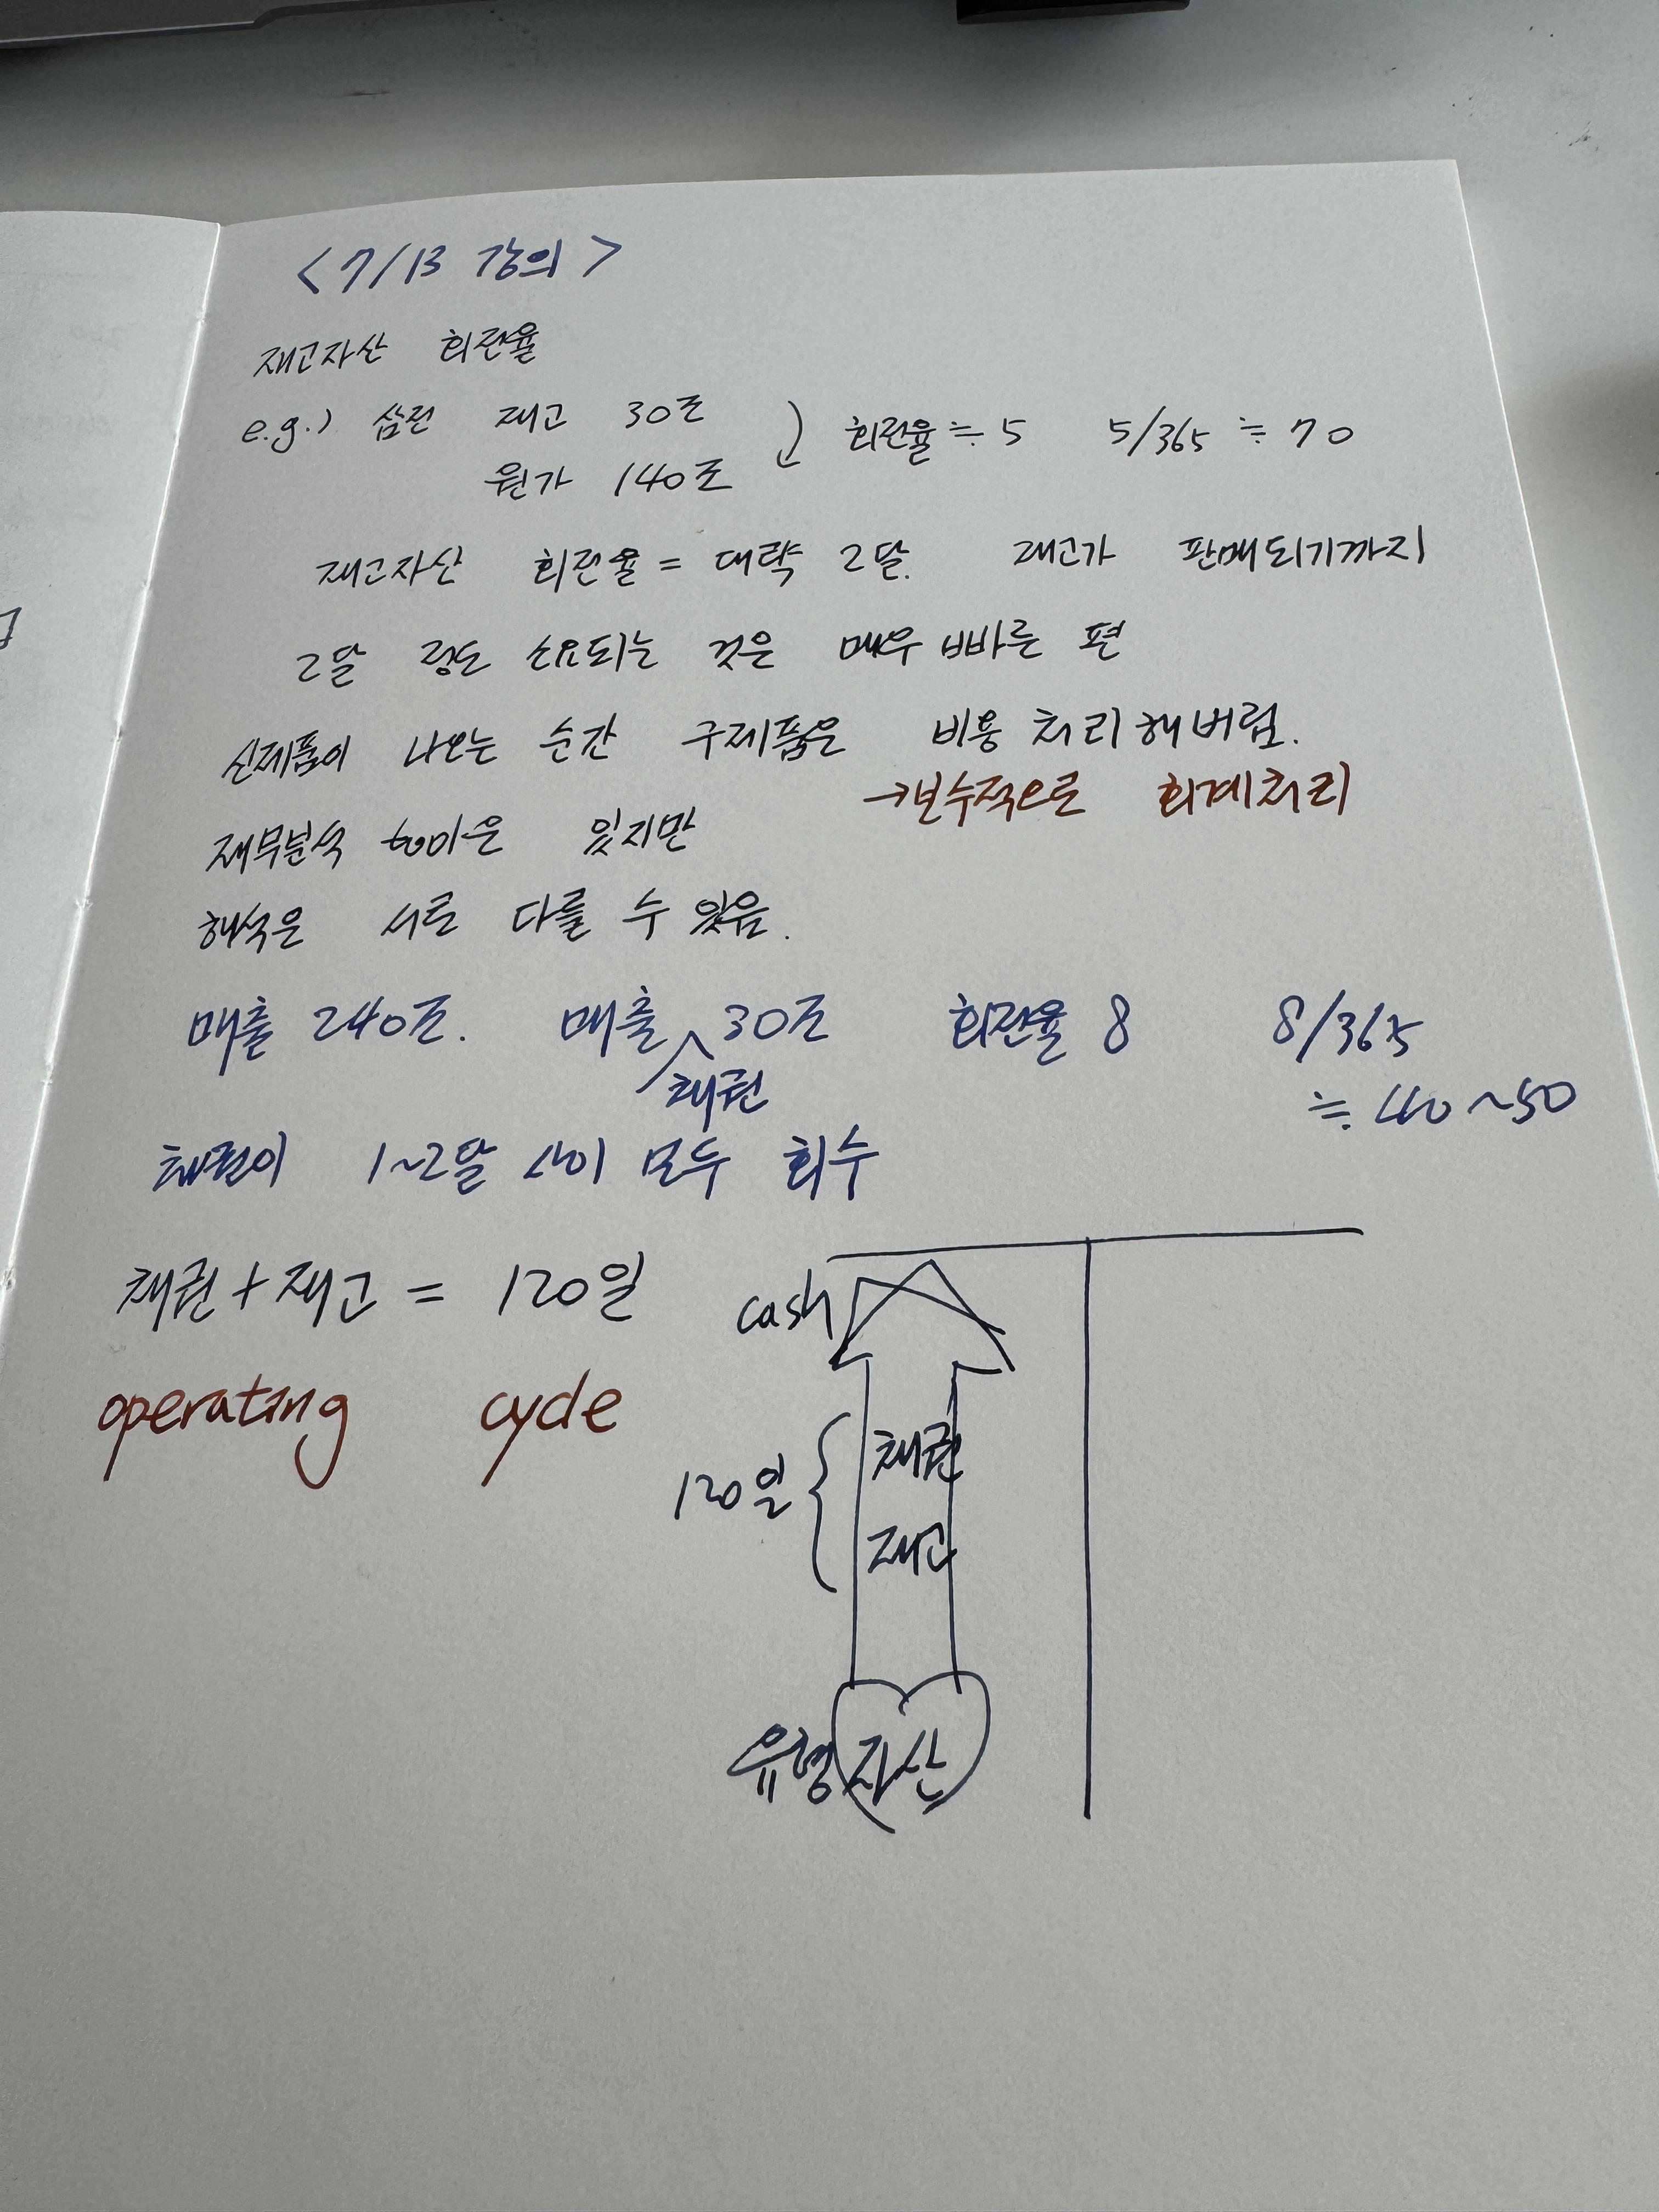 <7/13 강의>
재고자산 회전율
e.g.) 삼전 재고 30조 회전율≒5 5/365≒70
원가 140조
재고자산 회전율= 대략 2달. 재고가 판매되기까지
2달 정도 소요되는 것은 매우 빠른 편
신제품이 나오는 순간 구제품은 비용 처리해버림.
→보수적으로 회계처리
재무분석 tool은 있지만
해석은 서로 다를 수 있음.
매출 240조. 매출 30조 회전율 8 8/365
채권 ≒40~50
채권이 1~2달 사이 모두 회수
채권+재고= 120일
cash
operating cycle
채권
120일
재고
유형자산